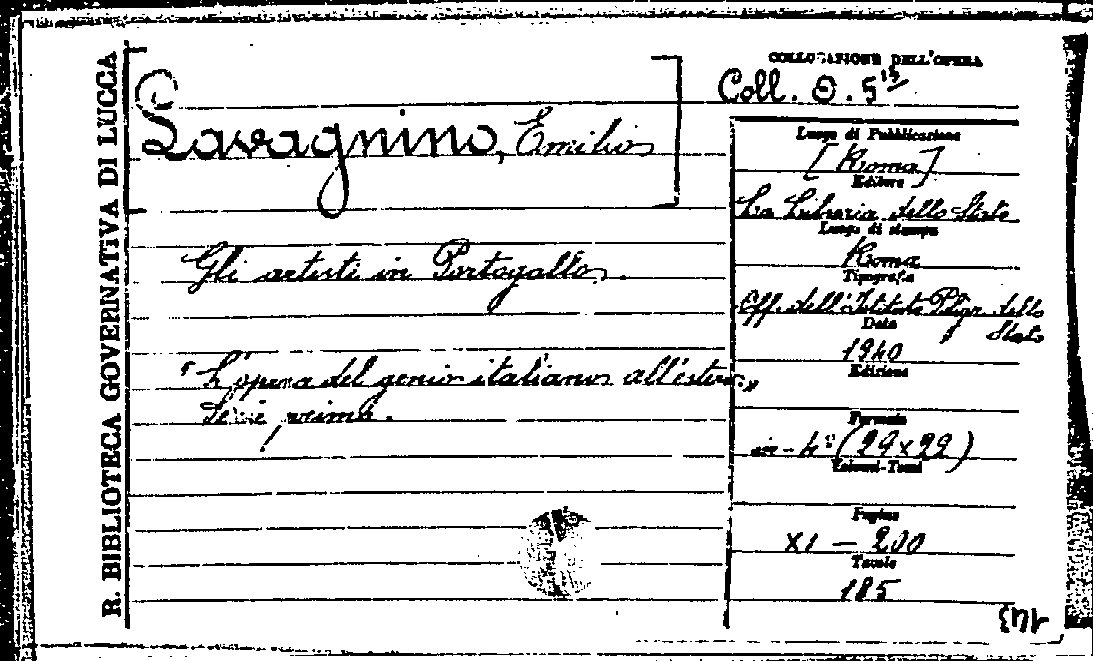 R. BIBLIOTECA GOVERNATIVA DI LUCCA
Lavagnino, Emilio
Gli artisti in Portogallo.
"L'opera del genio italiano all'estero"
Serie prima.
COLLOCAZIONE DELL'OPERA
Coll. O. 5
Luogo di Pubblicazione
[Roma]
Editore
La Libreria dello Stato
Luogo di stampa
Roma
Tipografia
Off. dell'Istituto Poligr. dello
Stato
Data
1940
Edizione
Formato
in-4º (29x22)
Volumi-Tomi
Pagine
XI — 200
Tavole
185
143